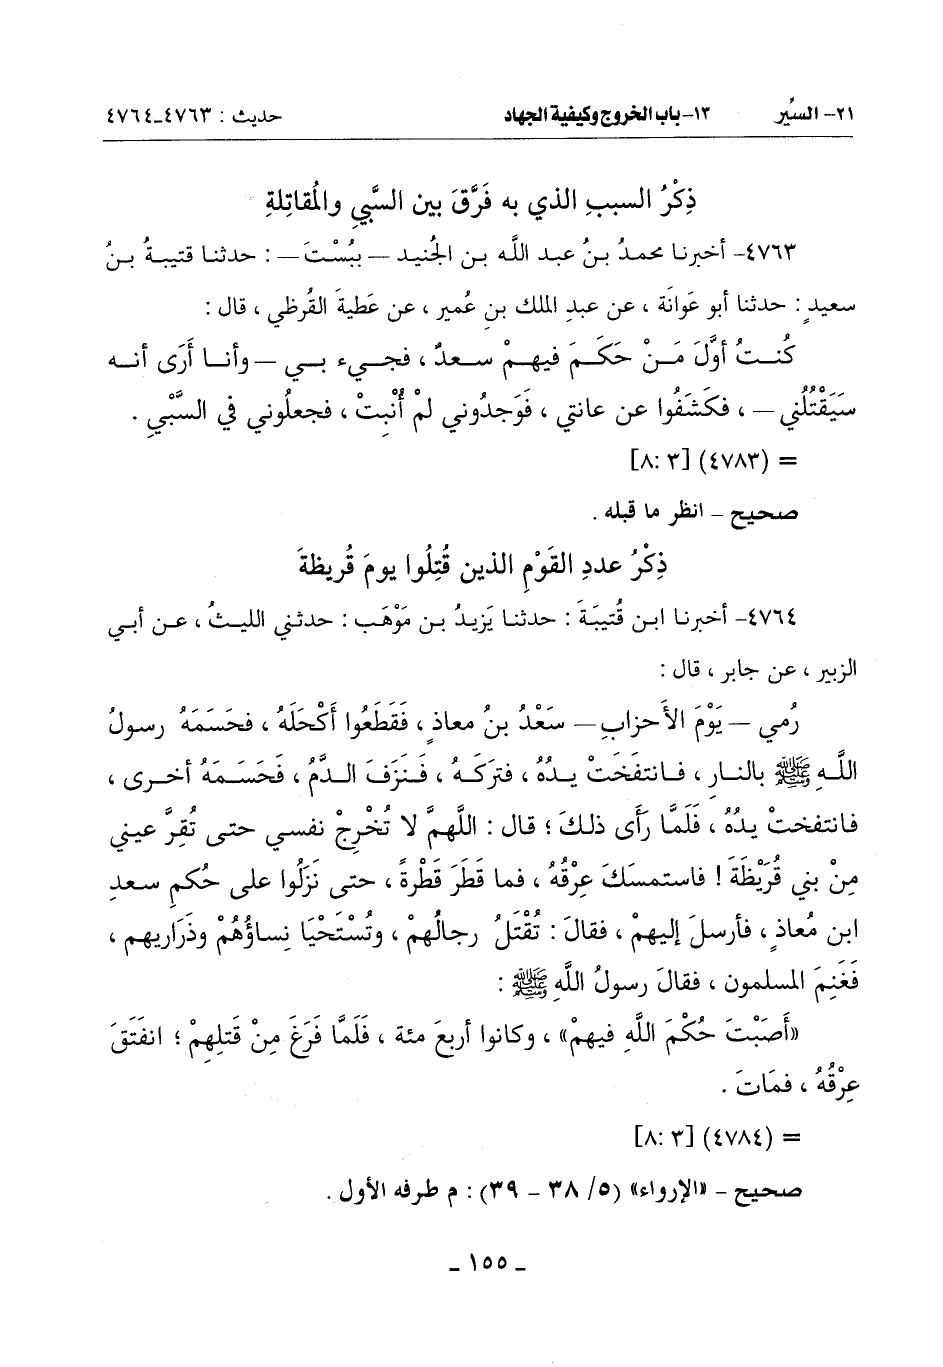 ٢١- السِّيَر ١٣-باب الخروج وكيفية الجهاد حديث : ٤٧٦٣ـ٤٧٦٤
ذِكْرُ السببِ الذي به فَرَّقَ بين السَّبيِ والمُقاتِلةِ
٤٧٦٣- أخبرنا محمدُ بنُ عبد اللَّه بن الجُنيد — ببُسْتَ — : حدثنا قتيبةُ بنُ
سعيدٍ : حدثنا أبو عَوانَة ، عن عبدِ الملك بن عُمير ، عن عَطيةَ القُرظي ، قال :
كُنتُ أوَّلَ مَنْ حَكَمَ فيهِمْ سعدٌ ، فجيء بي —وأنا أَرَى أنه
سَيَقْتُلُني — ، فكَشَفُوا عن عانتي ، فَوَجدُوني لمْ أُنْبِتْ ، فجعلُوني في السَّبْيِ .
= (٤٧٨٣) [٣ :٨]
صحيح - انظر ما قبله .
ذِكْرُ عددِ القَوْمِ الذين قُتِلُوا يومَ قُريظةَ
٤٧٦٤- أخبرنا ابن قُتيبَةَ : حدثنا يَزيدُ بن مَوْهَب : حدثني الليثُ ، عن أبي
الزبير ، عن جابر ، قال :
رُمي —يَوْمَ الأَحزابِ— سَعْدُ بنُ معاذٍ ، فَقَطَعُوا أَكْحَلَهُ ، فحَسَمَهُ رسولُ
اللَّهِ ﷺ بالنارِ ، فانتفَخَتْ يدُهُ ، فتركَهُ ، فنزَفَ الدَّمُ ، فَحَسَمَهُ أخرى ،
فانتفختْ يدُهُ ، فَلَمَّا رَأى ذلكَ ؛ قال : اللَّهمَّ لا تُخْرِجْ نفسي حتى تُقِرَّ عيني
مِنْ بني قُرَيْظَةَ ! فاستمسكَ عِرْقُهُ ، فما قَطَرَ قَطْرةً ، حتى نَزَلُوا على حُكمِ سعدِ
ابن مُعاذٍ ، فأرسلَ إليهِمْ ، فقالَ : تُقْتَلُ رجالُهمْ ، وتُسْتَحْيَا نِساؤُهُمْ وذَرَاريهم ،
فَغَنِمَ المسلمون ، فقالَ رسولُ اللَّهِ ﷺ :
«أَصَبْتَ حُكْمَ اللَّهِ فيهمْ» ، وكانوا أربعَ مئة ، فَلَمَّا فَرَغَ مِنْ قَتلِهِمْ ؛ انفَتَقَ
عِرْقُهُ ، فمَاتَ .
= (٤٧٨٤) [٣ :٨]
صحيح - «الإرواء» (٥/ ٣٨ - ٣٩) : م طرفه الأول .
ـ ١٥٥ ـ